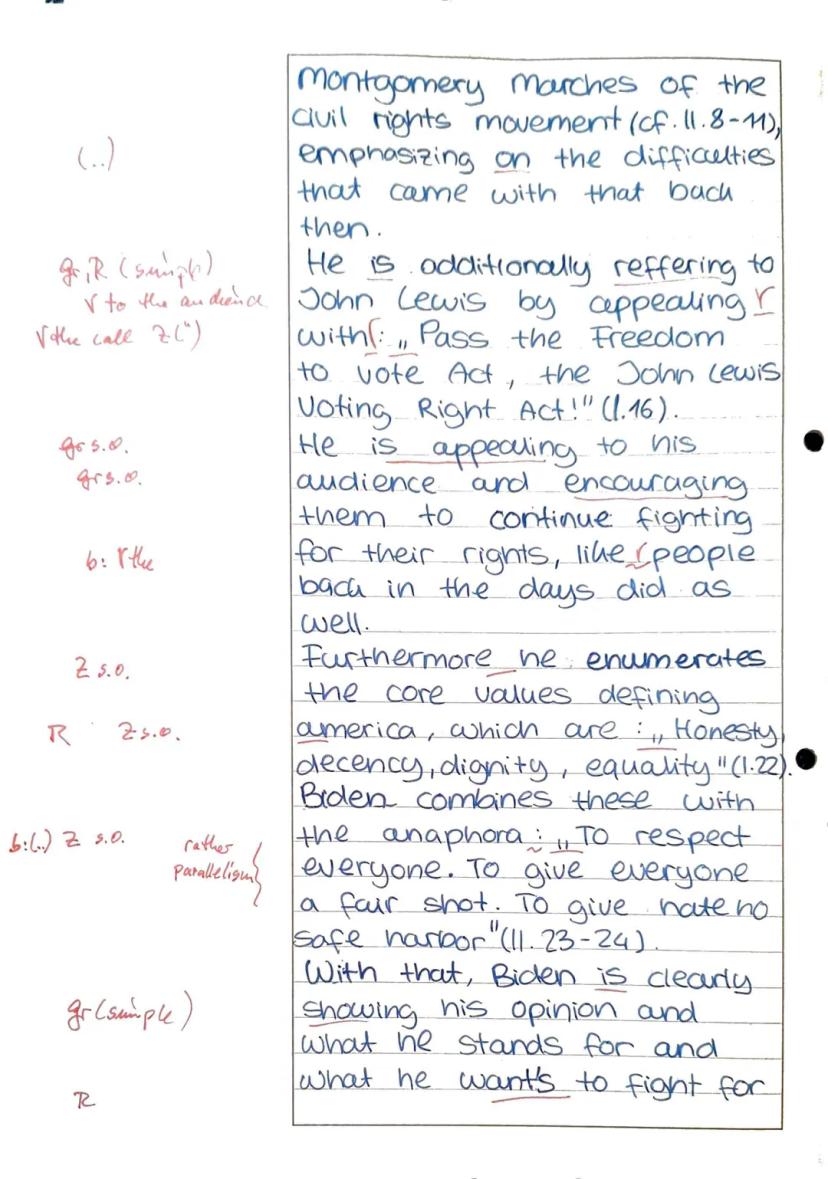 Montgomery Marches of the
civil rights movement (cf. ll. 8-11),
(..) emphasizing on the difficulties
that came with that back
then.
gr, R (simple) He is additionally reffering to
√ to the audience John Lewis by appealing √
√ the call Z(") with: „Pass the Freedom
to vote Act, the John Lewis
Voting Right Act!" (l.16).
gr s.o. He is appealing to his
gr s.o. audience and encouraging
them to continue fighting
b: √ the for their rights, like people
back in the days did as
well.
Z s.o. Furthermore he enumerates
the core values defining
R Z s.o. america, which are: „Honesty,
decency, dignity, equality" (l.22).
Biden combines these with
b:(..) Z s.o. rather the anaphora: „To respect
parallelism everyone. To give everyone
a fair shot. To give hate no
safe harbor" (ll. 23-24).
With that, Biden is clearly
gr (simple) showing his opinion and
what he stands for and
R what he want's to fight for